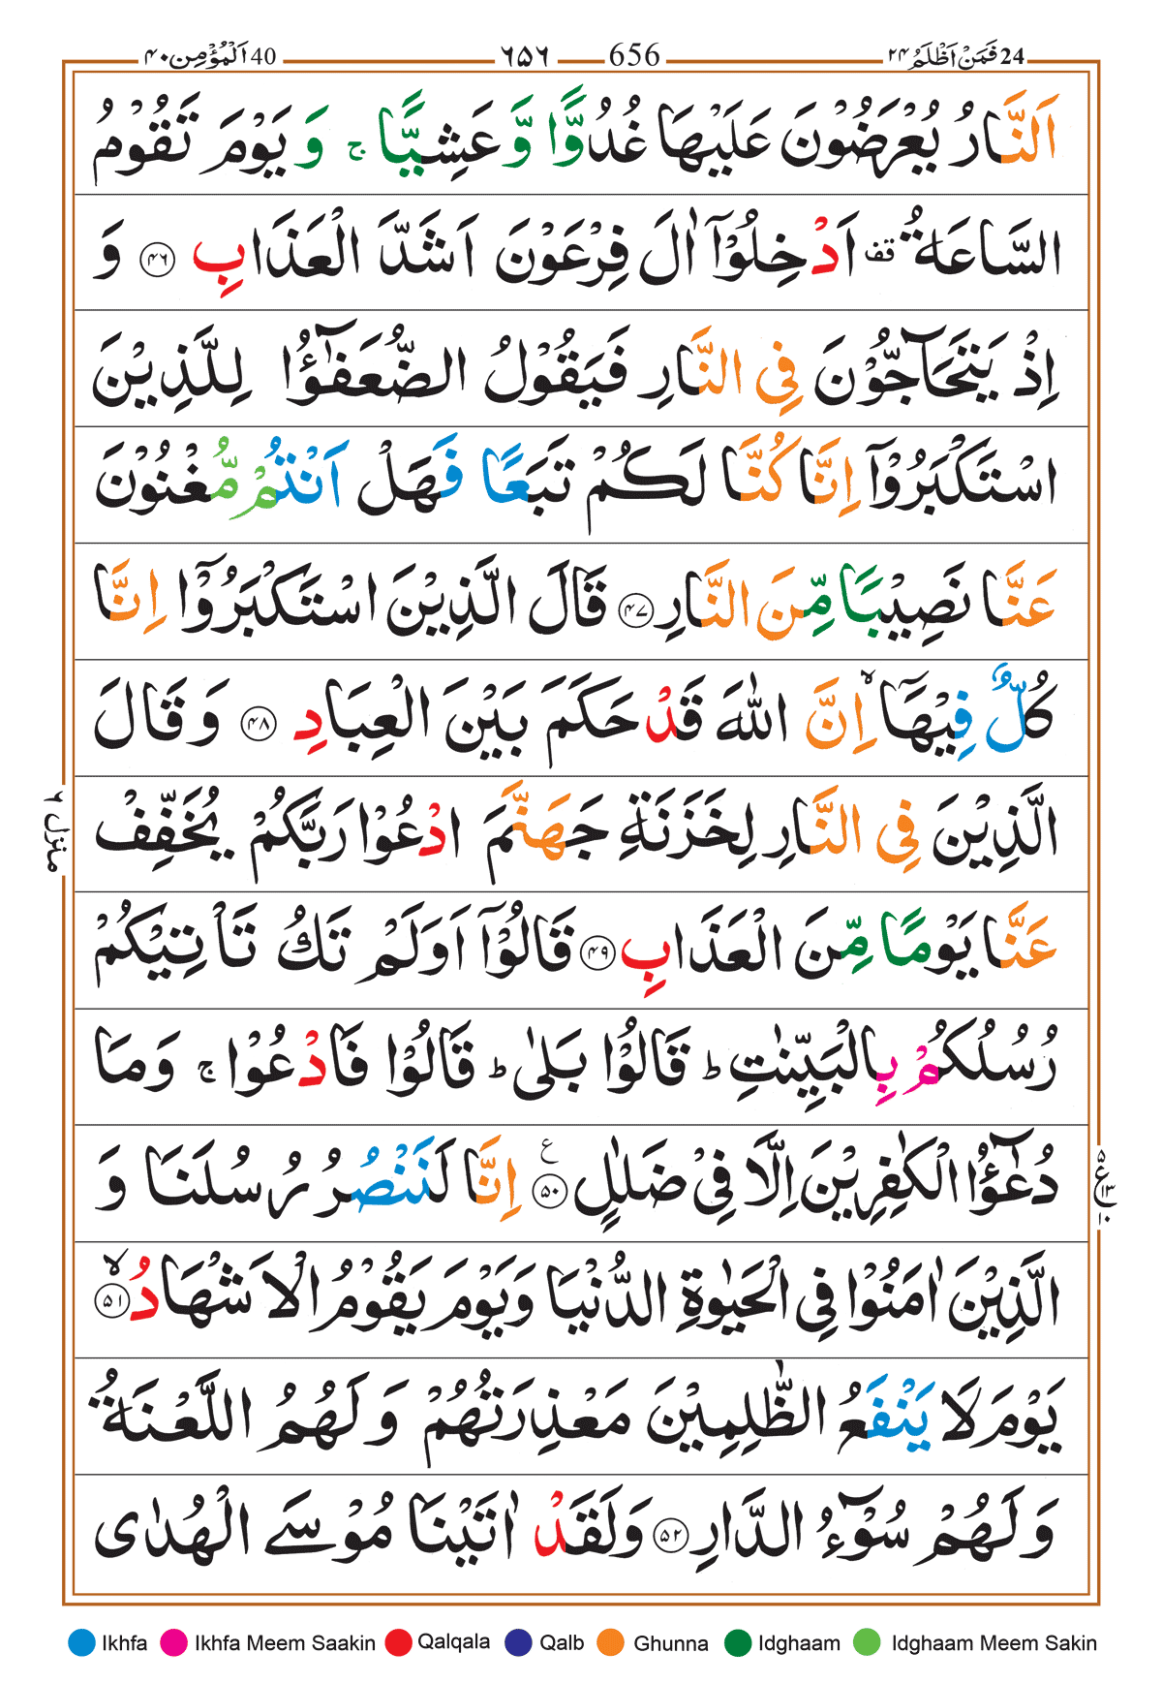 24 فَمَنْ اَظْلَمُ ۲۴ 656 ۶۵۶ 40 اَلْمُؤْمِن ۴۰
اَلنَّارُ يُعْرَضُوْنَ عَلَيْهَا غُدُوًّا وَّ عَشِيًّا ۚ وَ يَوْمَ تَقُوْمُ
السَّاعَةُ ۟ قف اَدْخِلُوْۤا اٰلَ فِرْعَوْنَ اَشَدَّ الْعَذَابِ ۴۶ وَ
اِذْ يَتَحَآجُّوْنَ فِي النَّارِ فَيَقُوْلُ الضُّعَفٰٓؤُا لِلَّذِيْنَ
اسْتَكْبَرُوْۤا اِنَّا كُنَّا لَكُمْ تَبَعًا فَهَلْ اَنْتُمْ مُّغْنُوْنَ
عَنَّا نَصِيْبًا مِّنَ النَّارِ ۴۷ قَالَ الَّذِيْنَ اسْتَكْبَرُوْۤا اِنَّا
كُلٌّ فِيْهَاۤ ۙ اِنَّ اللهَ قَدْ حَكَمَ بَيْنَ الْعِبَادِ ۴۸ وَ قَالَ
الَّذِيْنَ فِي النَّارِ لِخَزَنَةِ جَهَنَّمَ ادْعُوْا رَبَّكُمْ يُخَفِّفْ
عَنَّا يَوْمًا مِّنَ الْعَذَابِ ۴۹ قَالُوْۤا اَوَلَمْ تَكُ تَاْتِيْكُمْ
رُسُلُكُمْ بِالْبَيِّنٰتِ ؕ قَالُوْا بَلٰى ؕ قَالُوْا فَادْعُوْا ۚ وَمَا
دُعٰٓؤُا الْكٰفِرِيْنَ اِلَّا فِيْ ضَلٰلٍ ۵۰ ع اِنَّا لَنَنْصُرُ رُسُلَنَا وَ
الَّذِيْنَ اٰمَنُوْا فِي الْحَيٰوةِ الدُّنْيَا وَيَوْمَ يَقُوْمُ الْاَشْهَادُ ۙ ۵۱
يَوْمَ لَا يَنْفَعُ الظّٰلِمِيْنَ مَعْذِرَتُهُمْ وَ لَهُمُ اللَّعْنَةُ
وَ لَهُمْ سُوْٓءُ الدَّارِ ۵۲ وَلَقَدْ اٰتَيْنَا مُوْسَى الْهُدٰى
منزل ۶
۵ ع ۱۳ ۱۰
Ikhfa Ikhfa Meem Saakin Qalqala Qalb Ghunna Idghaam Idghaam Meem Sakin